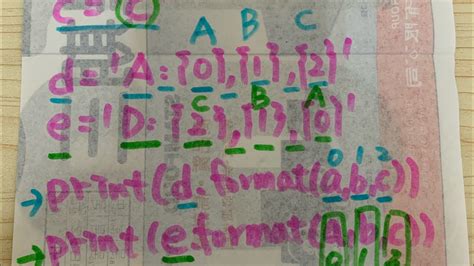 c = 'C'
A B C
d = 'A: {0}, {1}, {2}'
C B A
e = 'D: {2}, {1}, {0}'
0 1 2
→ print(d.format(a,b,c))
→ print(e.format(a,b,c))
0 1